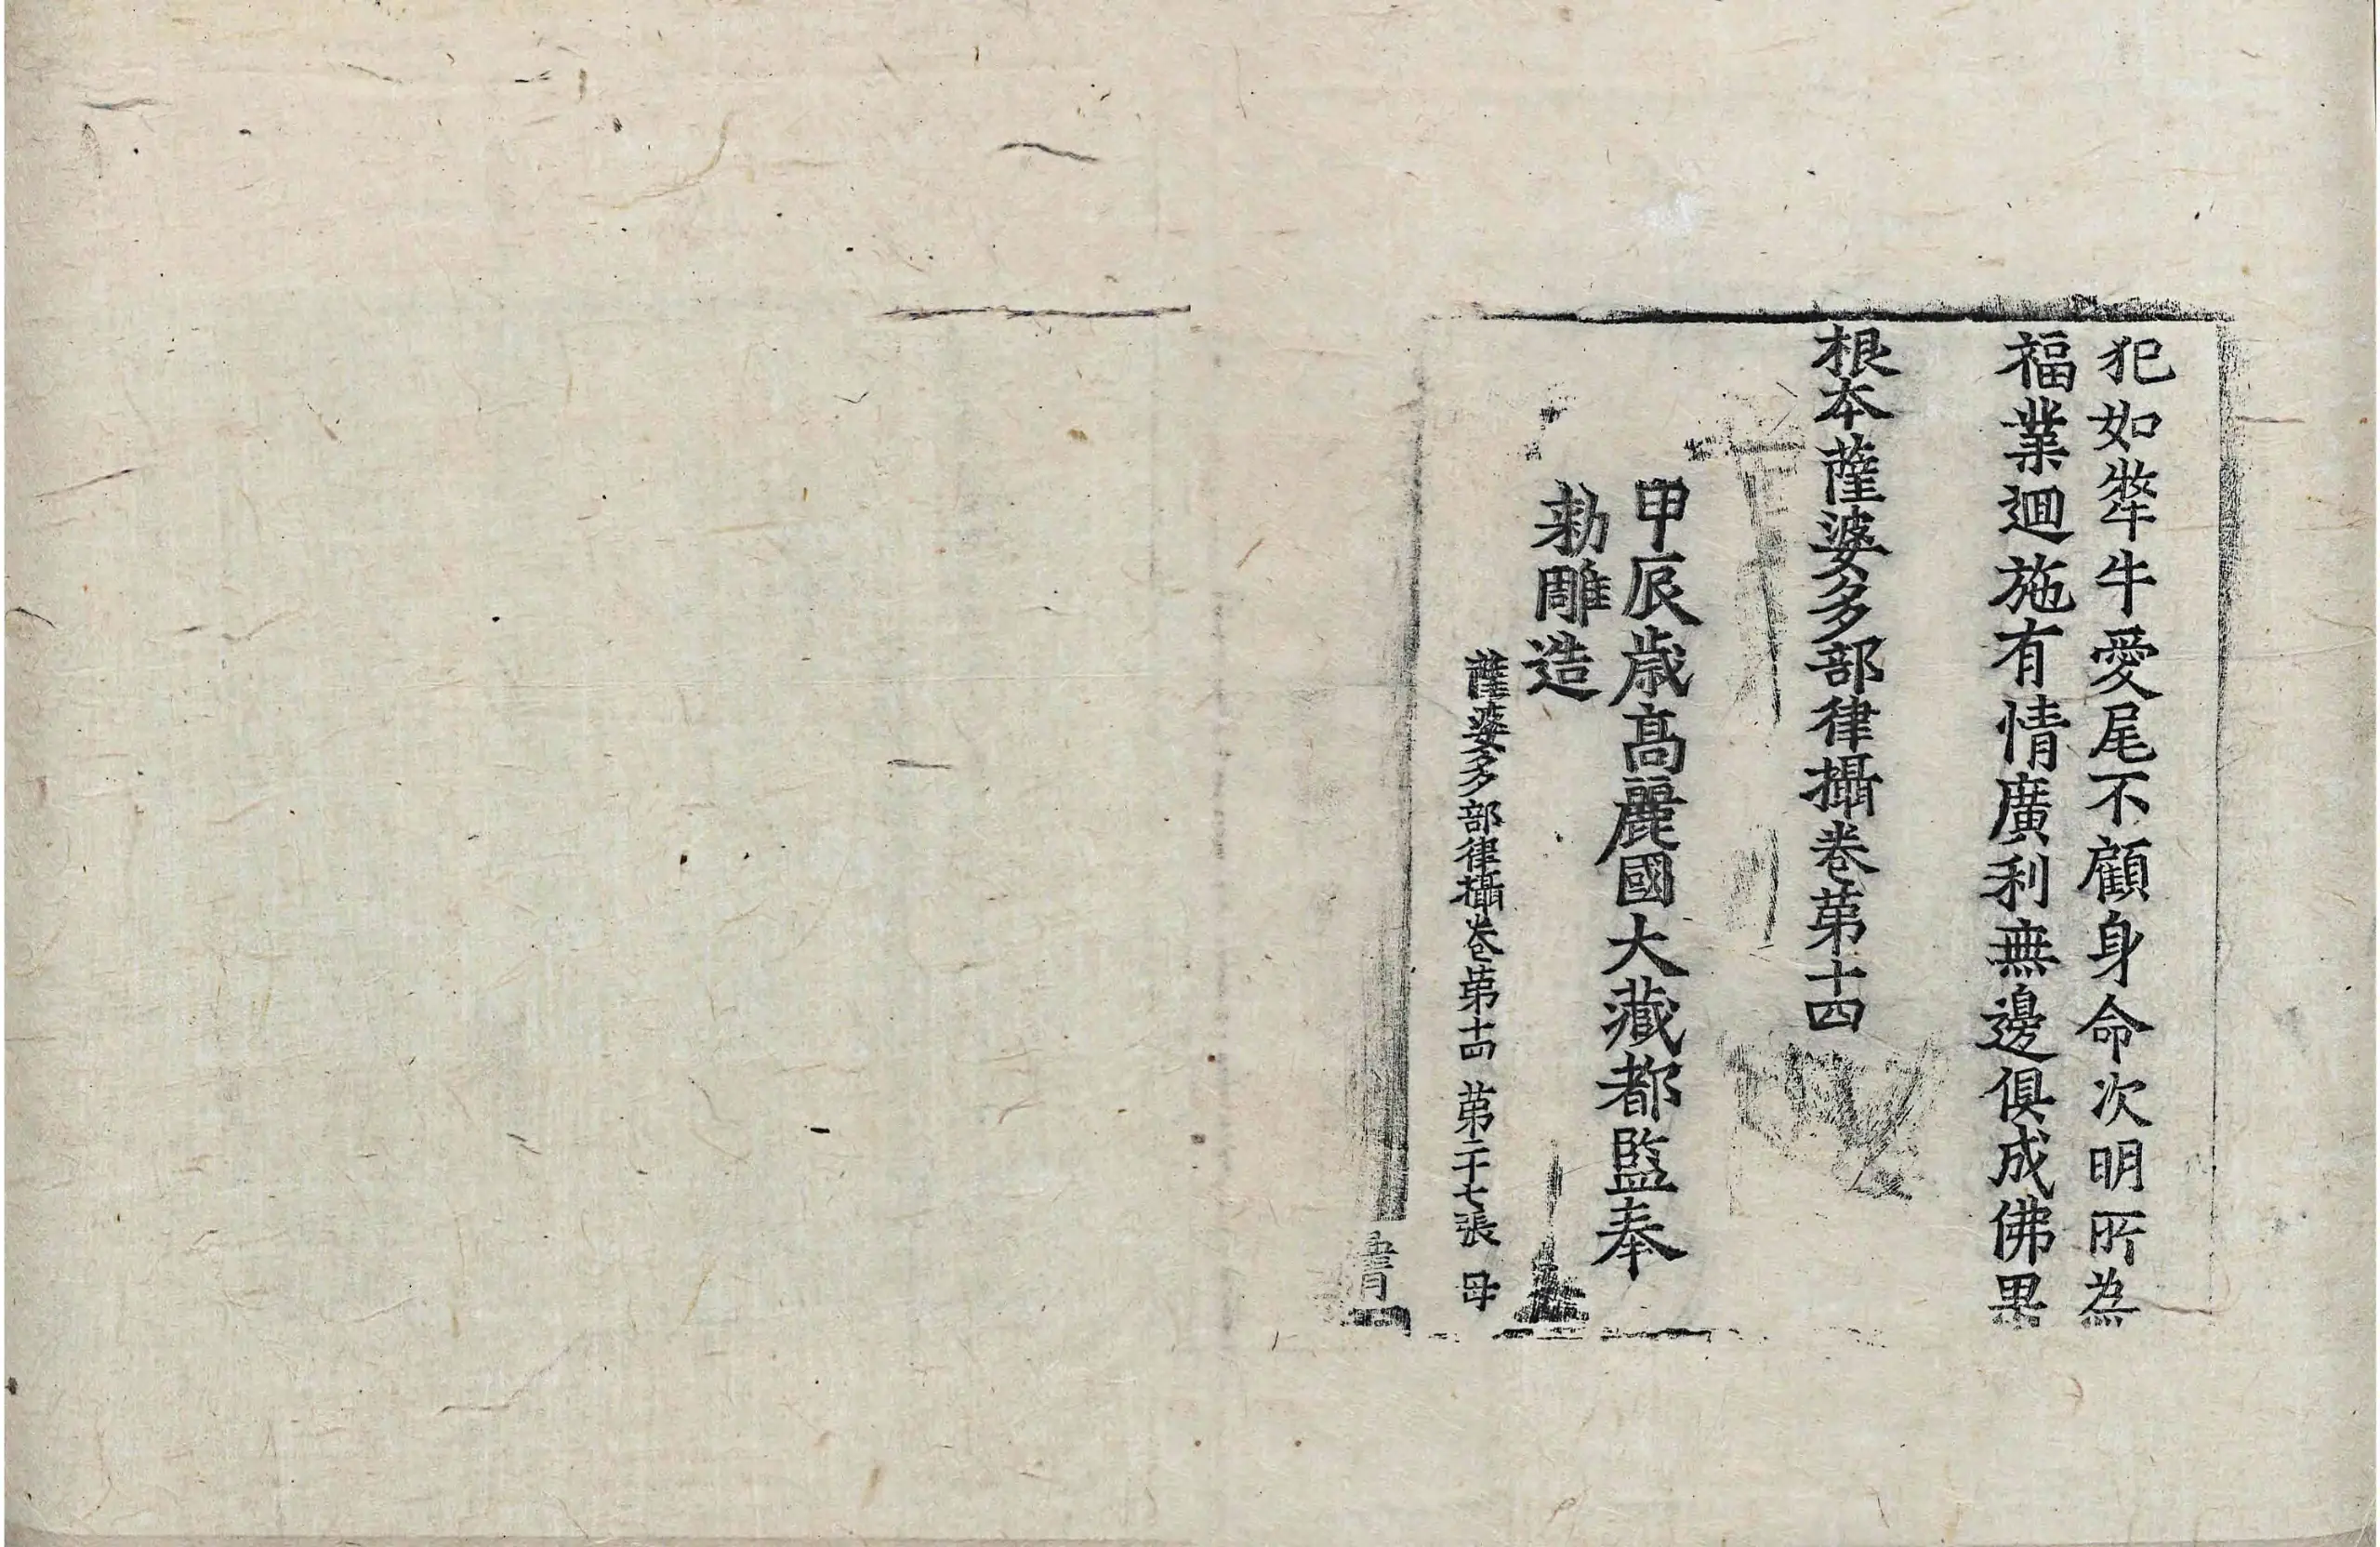 犯如犛牛愛尾不顧身命次明所為
福業迴施有情廣利無邊俱成佛果
根本薩婆多部律攝卷第十四
甲辰歲高麗國大藏都監奉
勅雕造
薩婆多部律攝卷第十四 第二十七張 母